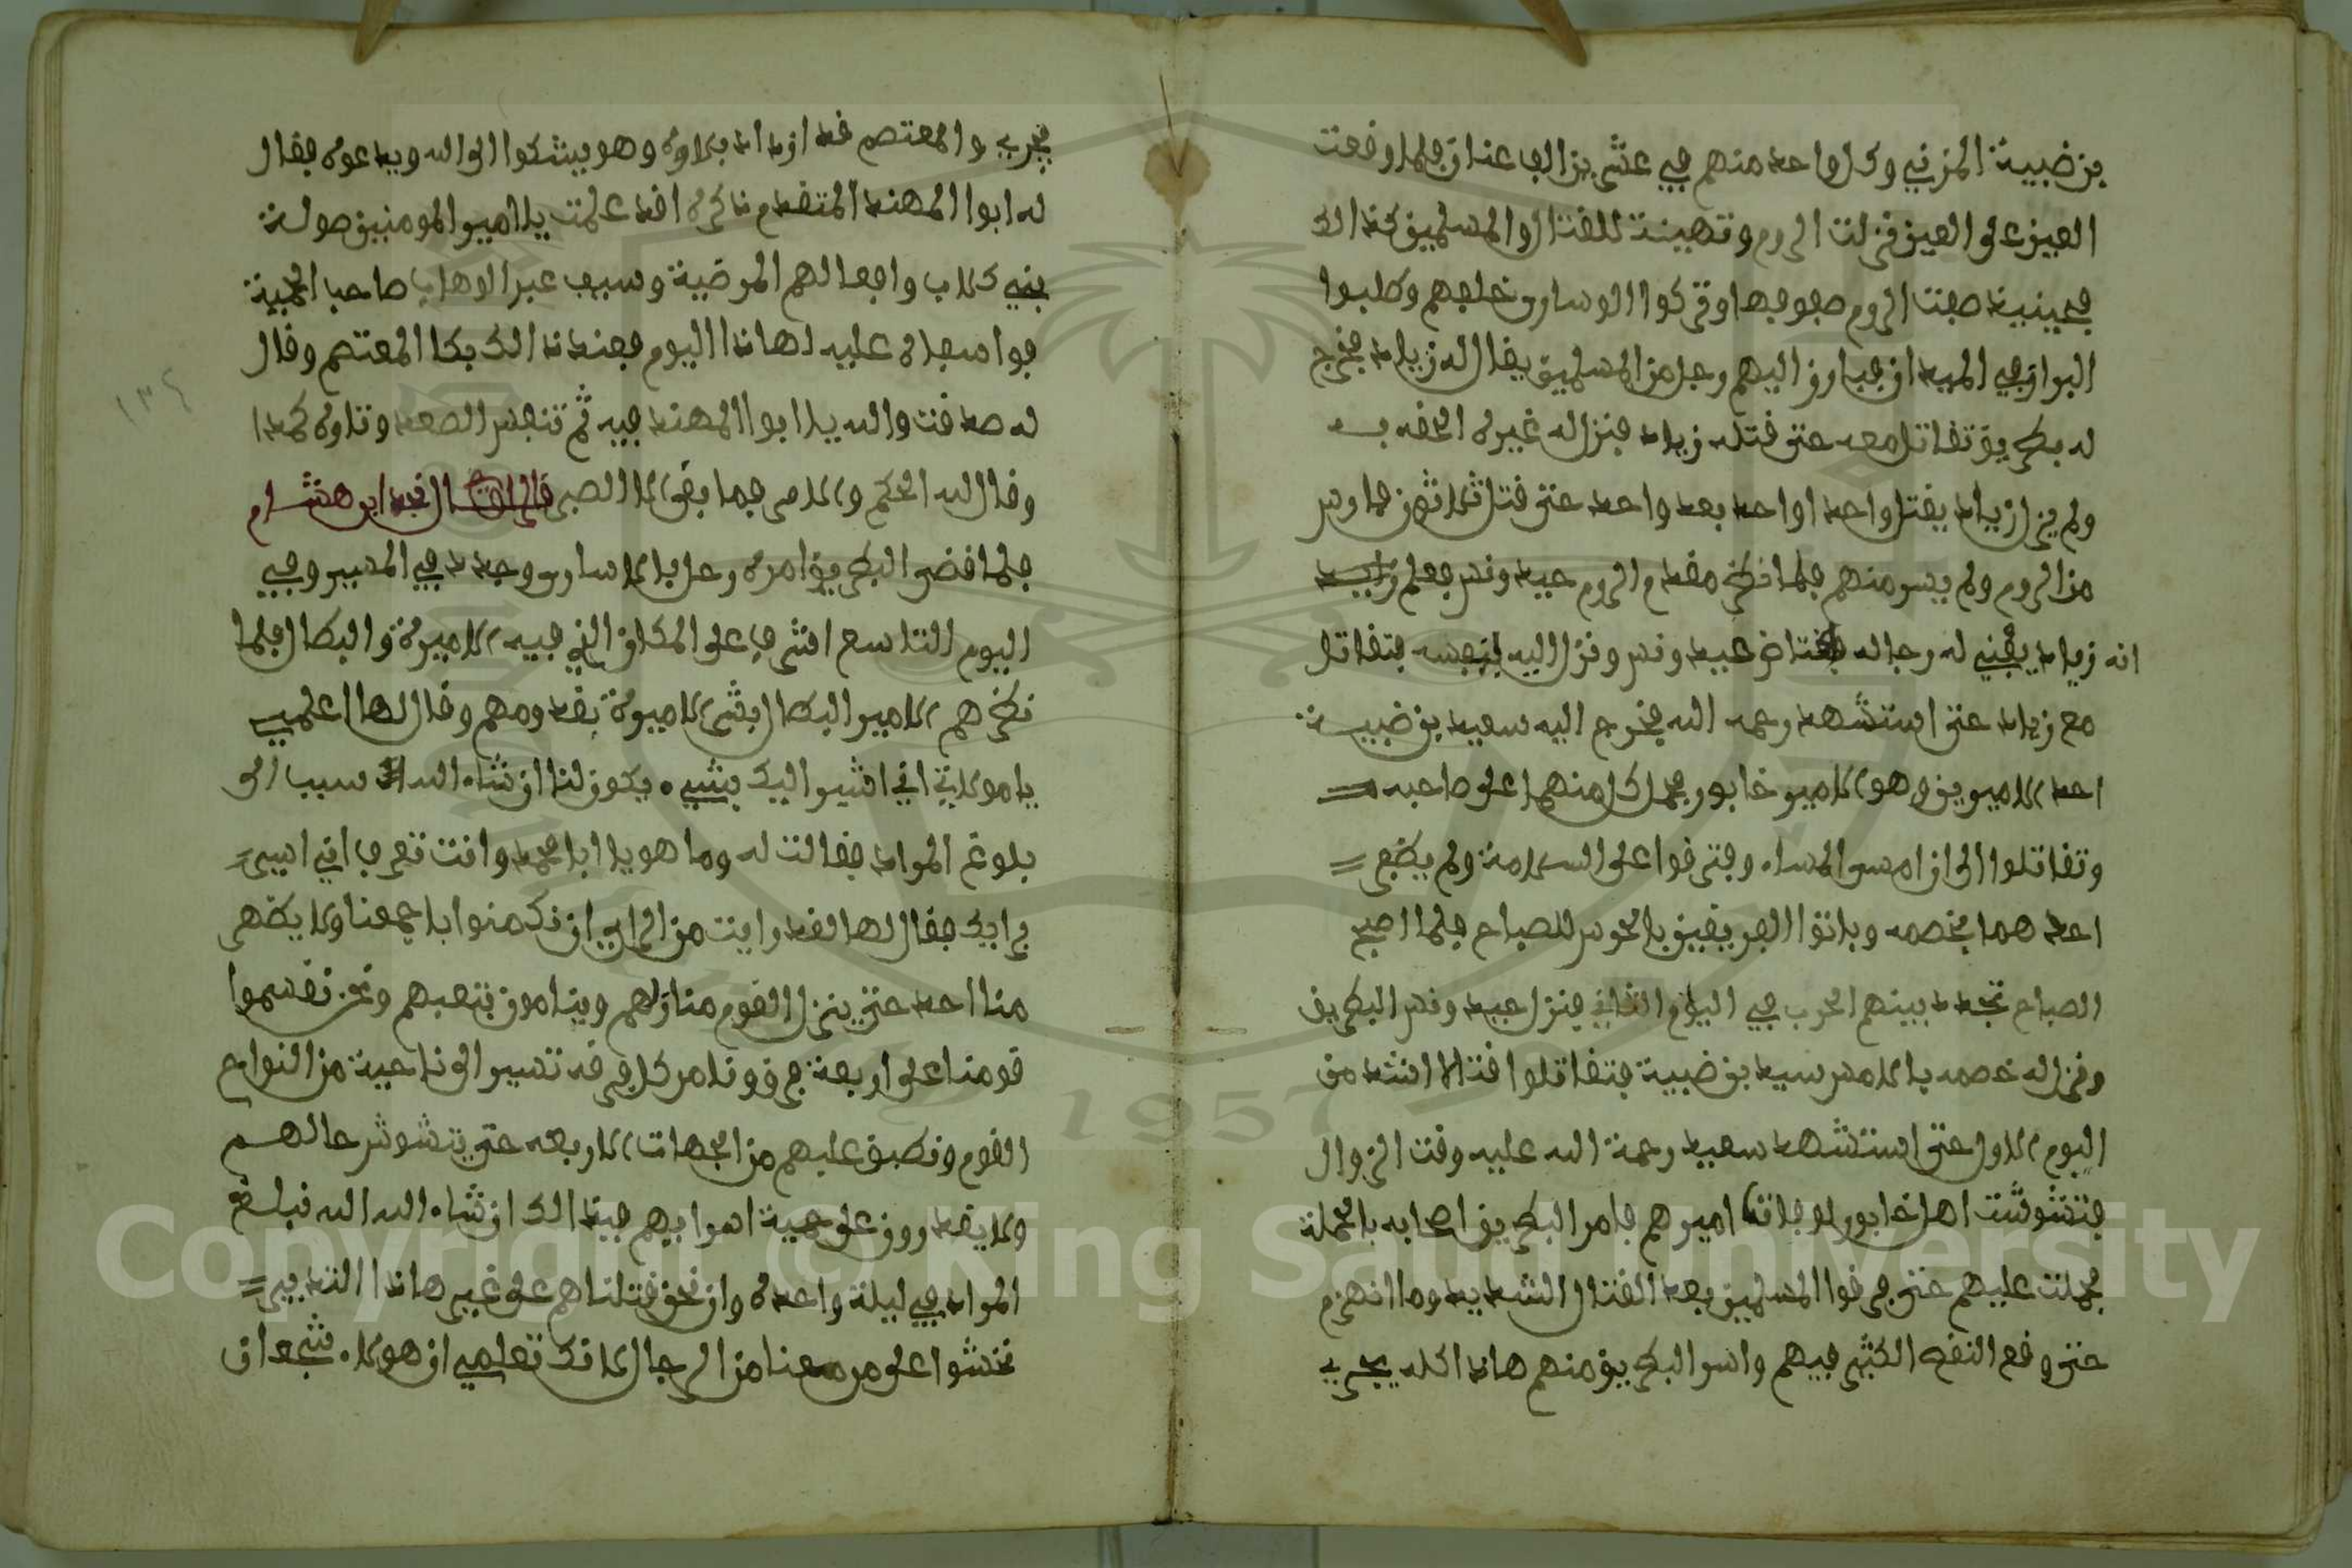 بن ضبية المزني وكل واحد منهم في عشرين الف عنان فلما وقعت
العين على العين فنزلت الروم وتهيئة للقتال والمسلمين كذالك
فحينيذ صفت الروم صفوفها وتركوا الاوسارى خلفهم وطلبوا
البراز في الميدان فبارز اليهم رجل من المسلمين يقال له زياد فخرج
له بطريق تقاتل معه حتى قتله زياد فنزل له غيره الحقه به
ولم يزل زياد يقتل واحدا واحد بعد واحد حتى قتل ثلاثون فارس
من الروم ولم ييسر منهم فلما نظر مقدم الروم حيدونس فعلم
انه زياد يفني له رجاله فاغتاض حيدونس ونزل اليه بنفسه فتقاتل
مع زياد حتى استشهد رحمه الله فخرج اليه سعيد بن ضبية
احد الاميرين وهو الامير خابور فحمل كل منهما على صاحبه
وتقاتلوا الى ان امسى المساء وفترقوا على السلامة ولم يظفر
احد هما بخصمه وباتوا الفريقين بالحرس للصباح فلما اصبح
الصباح تجدد بينهم الحرب في اليوم الثاني فنزل حيدونس البطريق
ونزل له خصمه بالامس سيد بن ضبية فتقاتلوا قتالا اشد من
اليوم الاول حتى استشهد سعيد رحمة الله عليه وقت الزوال
فتشوشت اهل خابور لوفاة اميرهم فامر البطريق اصحابه بالحملة
فحملت عليهم حتى فرقوا المسلمين بعد القتال الشديد وما انهزم
حتى وقع النقص الكثير فيهم واسر البطريق منهم هاذا كله يجري
فجرى والمعتصم قد ازداد بلاوه وهو يشكوا الى الله ويدعوه فقال
له ابوا المهند المتقدم ذكره اقد علمت يا امير المومنين صولة
بني كلاب وافعالهم المرضية وسيف عبد الوهاب صاحب الحمية
فوا سفاه عليه لهاذا اليوم فعند ذالك بكا المعتصم وقال
له صدقت والله يا ابوا المهند فيه ثم تنفس الصعدا وتاوه كمدا
وقال لله الحكم والامر فما بقى الا الصبر قال نجد ابن هشام
فلما قضى البطريق امره رحل بالاسارى وجدد في المسير وفي
اليوم التاسع اشرف على المكان الذي فيه الاميرة والبطال فلما
نظرهم الامير البطال بشر الاميرة بقدومهم وقال لها اعلمي
يا مولاتي اني اشير اليك بشيء يكون لنا ان شاء الله سبب الى
بلوغ المراد فقالت له وما هو يا ابا محمد وانت تعرف اني اسير
برايك فقال لها لقد رايت من الراي ان نكمنوا باجمعنا ولا يظهر
منا احد حتى ينزل القوم منازلهم وينامون بتعبهم ونحن نقسموا
قومنا على اربعة فرق ونامر كل فرقه تسير الى ناحية من النواح
القوم ونطبق عليهم من الجهات الاربعه حتى يتشوش حالهم
ولا يقدرون على حمية اسراهم فبذالك ان شاء الله الله نبلغ
المراد في ليلة واحدة وان نحن قتلناهم على غير هاذا التدبير
نخشوا على من معنا من الرجال لانك تعلمي ان هولاء شجعان
١٣٤
1957
Copyright © King Saud University